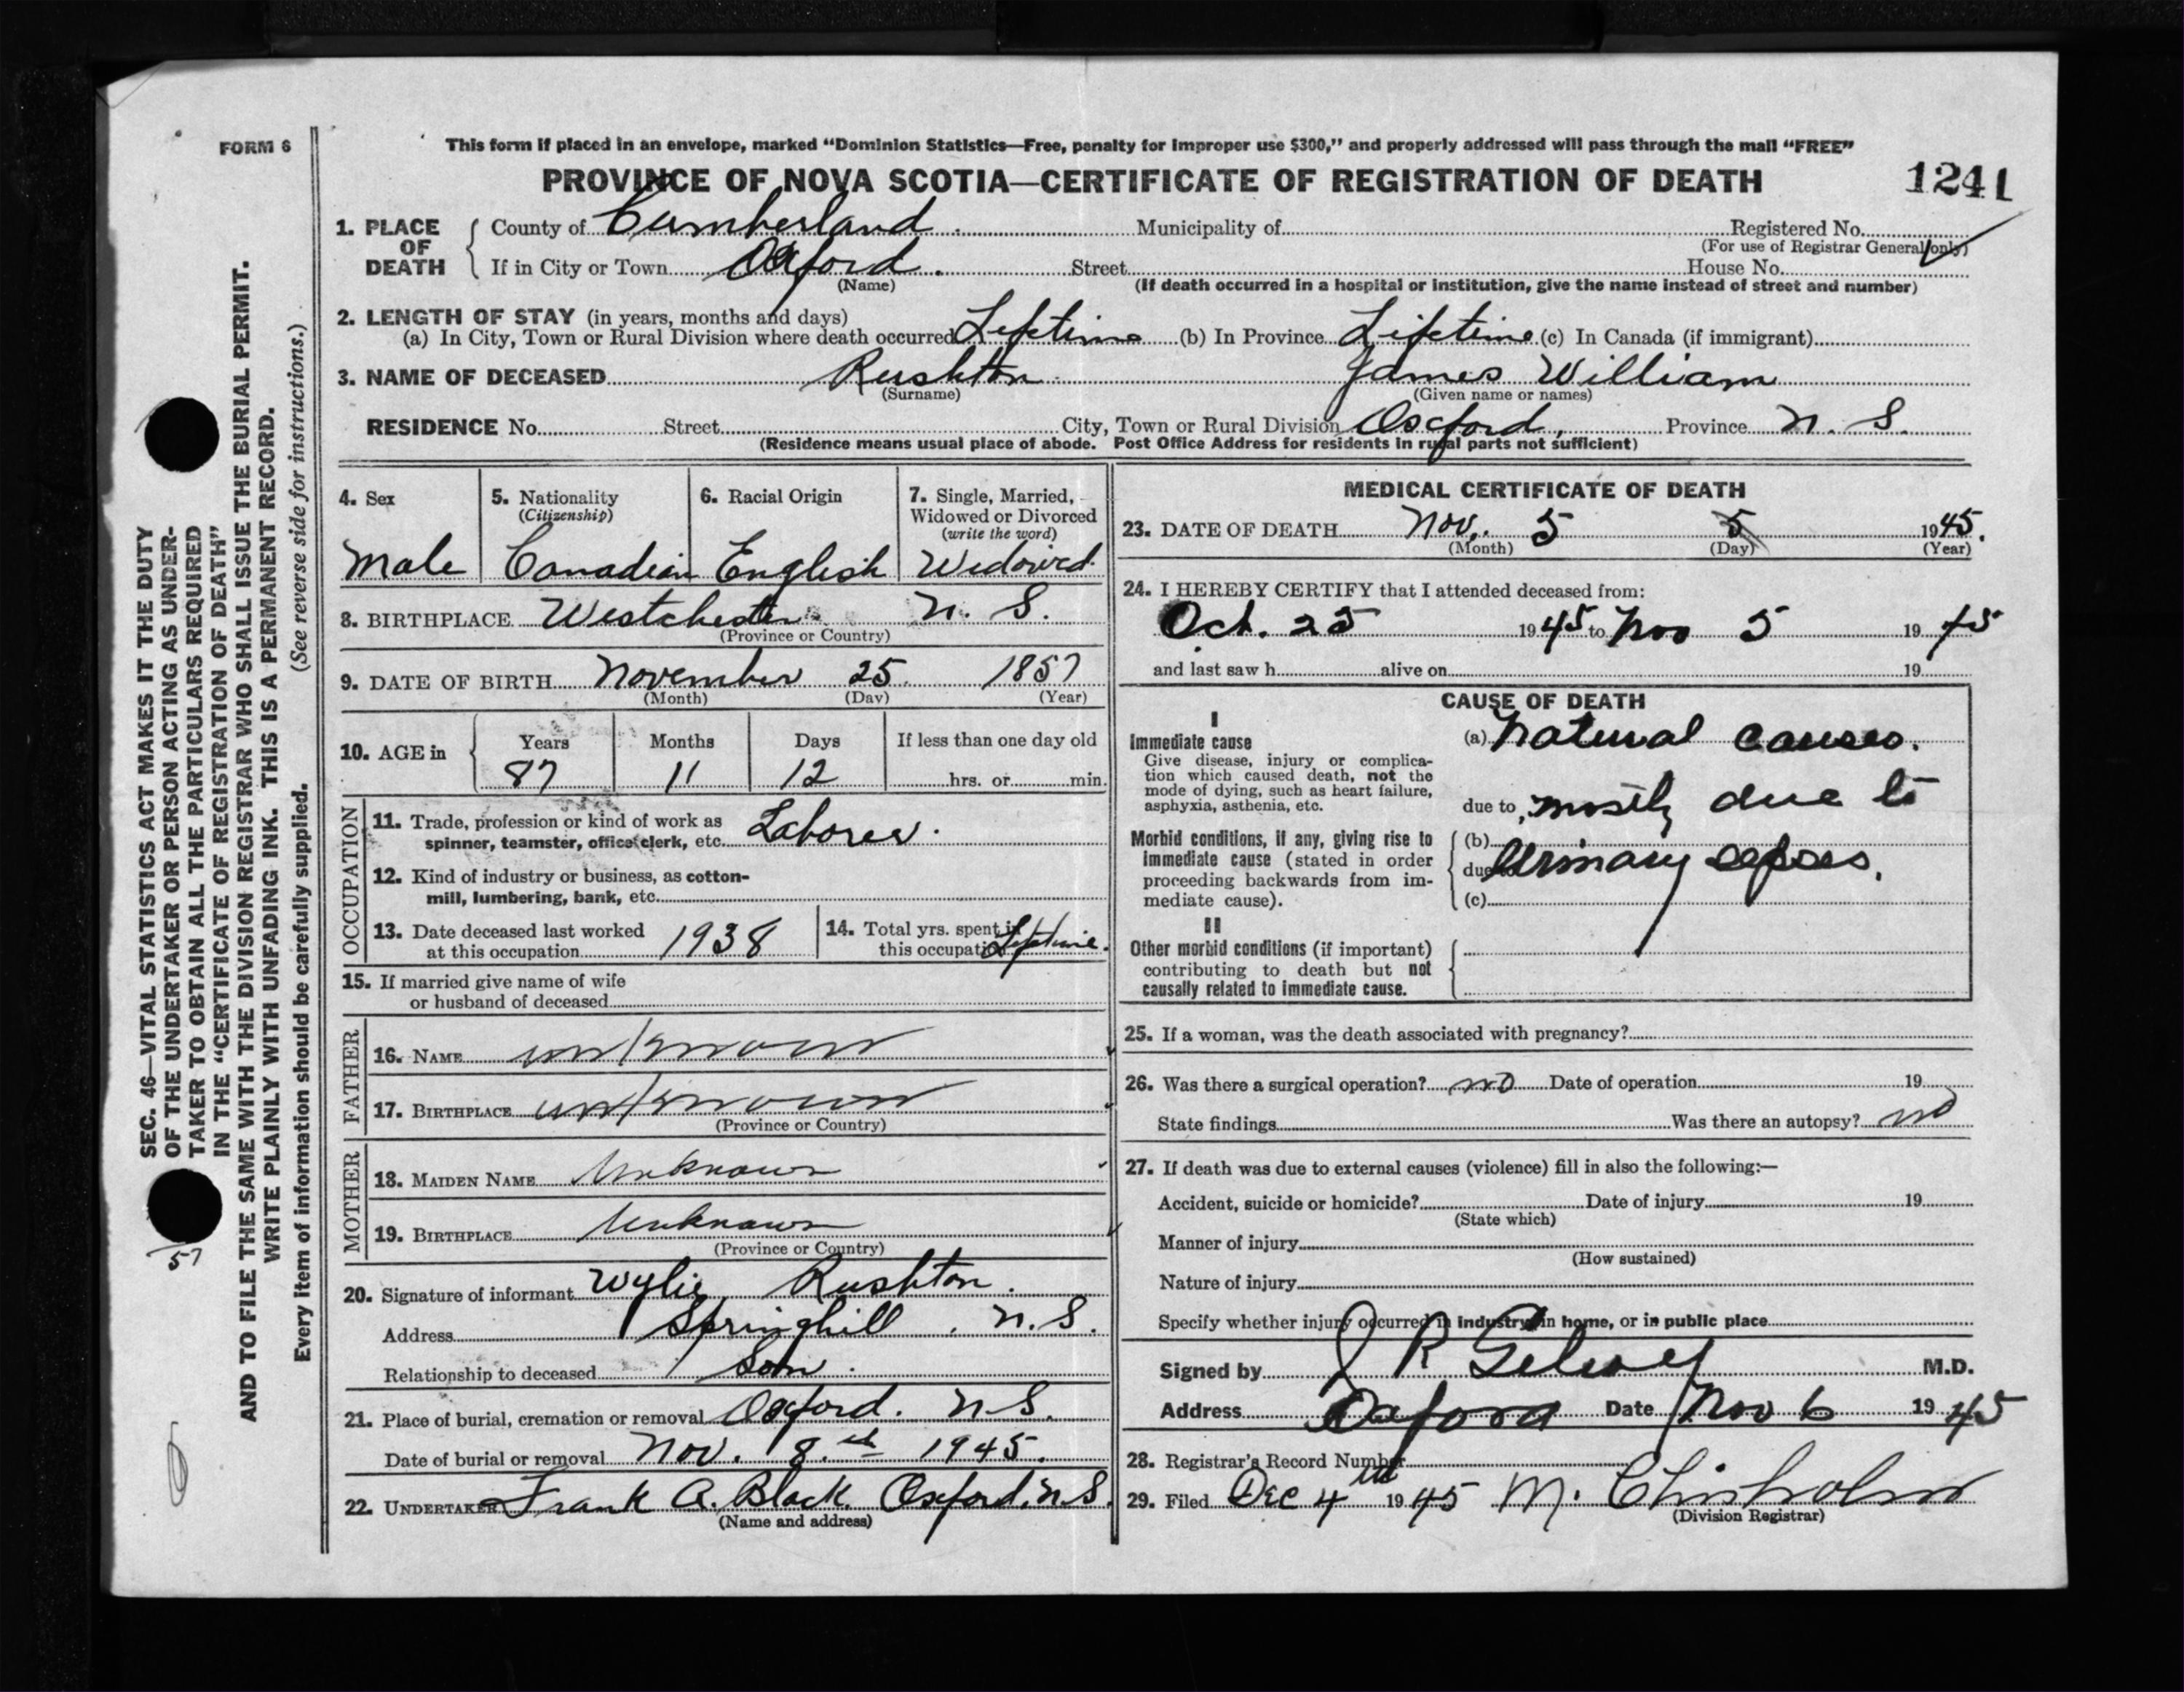 FORM 6
This form if placed in an envelope, marked “Dominion Statistics—Free, penalty for improper use $300,” and properly addressed will pass through the mail “FREE”
PROVINCE OF NOVA SCOTIA—CERTIFICATE OF REGISTRATION OF DEATH
1241
1. PLACE OF DEATH County of Cumberland. Municipality of Registered No.
(For use of Registrar General only)
If in City or Town Oxford. Street House No.
(Name) (If death occurred in a hospital or institution, give the name instead of street and number)
2. LENGTH OF STAY (in years, months and days)
(a) In City, Town or Rural Division where death occurred Lifetime (b) In Province Lifetime (c) In Canada (if immigrant)
3. NAME OF DECEASED Rushton James William
(Surname) (Given name or names)
RESIDENCE No. Street City, Town or Rural Division Oxford, Province N. S.
(Residence means usual place of abode. Post Office Address for residents in rural parts not sufficient)
4. Sex
Male
5. Nationality
(Citizenship)
Canadian
6. Racial Origin
English
7. Single, Married,
Widowed or Divorced
(write the word)
Widowed.
8. BIRTHPLACE Westchester N. S.
(Province or Country)
9. DATE OF BIRTH November 25 1857
(Month) (Day) (Year)
10. AGE in Years Months Days If less than one day old
87 11 12 hrs. or min.
OCCUPATION
11. Trade, profession or kind of work as
spinner, teamster, office clerk, etc. Laborer.
12. Kind of industry or business, as cotton-
mill, lumbering, bank, etc.
13. Date deceased last worked
at this occupation 1938
14. Total yrs. spent in
this occupation Lifetime.
15. If married give name of wife
or husband of deceased
FATHER
16. NAME unknown
17. BIRTHPLACE unknown
(Province or Country)
MOTHER
18. MAIDEN NAME Unknown
19. BIRTHPLACE Unknown
(Province or Country)
20. Signature of informant Wylie Rushton.
Address Springhill, N.S.
Relationship to deceased Son.
21. Place of burial, cremation or removal Oxford. N.S.
Date of burial or removal Nov. 8.th 1945.
22. UNDERTAKER Frank A. Black Oxford, N.S.
(Name and address)
MEDICAL CERTIFICATE OF DEATH
23. DATE OF DEATH Nov. 5 5 1945.
(Month) (Day) (Year)
24. I HEREBY CERTIFY that I attended deceased from:
Oct. 25 1945 to Nov 5 1945
and last saw h alive on 19
CAUSE OF DEATH
I
Immediate cause
Give disease, injury or complica-
tion which caused death, not the
mode of dying, such as heart failure,
asphyxia, asthenia, etc.
(a) Natural causes.
due to, mostly due to
Morbid conditions, if any, giving rise to
immediate cause (stated in order
proceeding backwards from im-
mediate cause).
(b)
due to Urinary sepsis.
(c)
II
Other morbid conditions (if important)
contributing to death but not
causally related to immediate cause.
25. If a woman, was the death associated with pregnancy?
26. Was there a surgical operation? no Date of operation 19
State findings Was there an autopsy? no
27. If death was due to external causes (violence) fill in also the following:—
Accident, suicide or homicide? Date of injury 19
(State which)
Manner of injury
(How sustained)
Nature of injury
Specify whether injury occurred in industry, in home, or in public place
Signed by J R M.D.
Address Oxford Date Nov 6 1945
28. Registrar's Record Number
29. Filed Dec 4th 1945 M. Chisholm
(Division Registrar)
SEC. 46—VITAL STATISTICS ACT MAKES IT THE DUTY
OF THE UNDERTAKER OR PERSON ACTING AS UNDER-
TAKER TO OBTAIN ALL THE PARTICULARS REQUIRED
IN THE “CERTIFICATE OF REGISTRATION OF DEATH”
AND TO FILE THE SAME WITH THE DIVISION REGISTRAR WHO SHALL ISSUE THE BURIAL PERMIT.
WRITE PLAINLY WITH UNFADING INK. THIS IS A PERMANENT RECORD.
Every item of information should be carefully supplied. (See reverse side for instructions.)
57